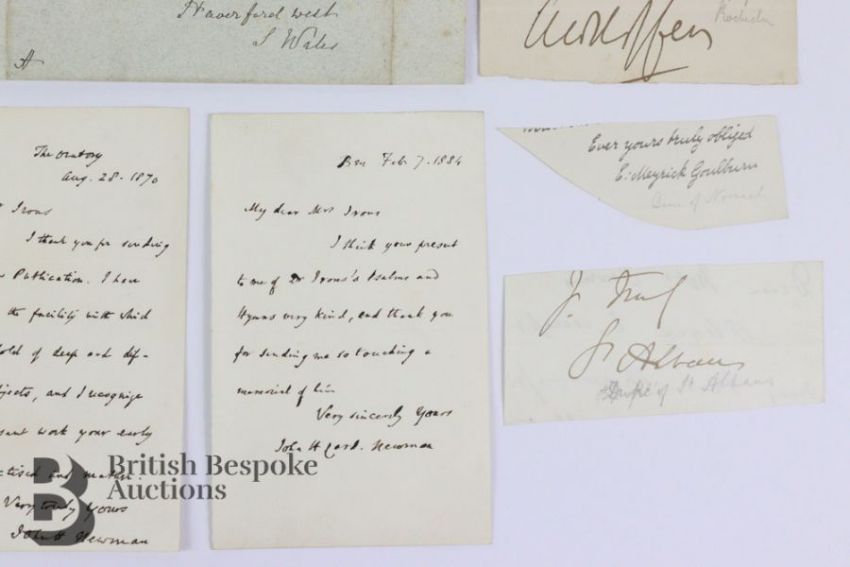 Haverford west
S Wales
A
The Oratory
Aug. 28. 1870
Irons
I thank you for sending
Publication. I have
the facility with which
hold of deep and dif-
jects, and I recognize
sent work your early
ctised and mature.
Very truly Yours
John H Newman
Bm Feb 7. 1884
My dear Mrs Irons
I think your present
to me of Dr Irons's Psalms and
Hymns very kind, and thank you
for sending me so touching a
memorial of him
Very sincerely Yours
John H Card. Newman
Ever yours truly obliged
E. Meyrick Goulburn
Dean of Norwich
St Albans
Duke of St Albans
British Bespoke
Auctions